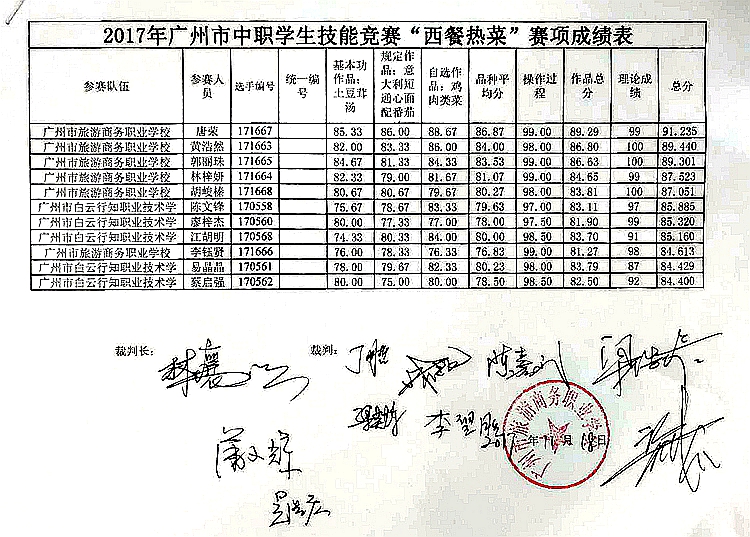 2017年广州市中职学生技能竞赛“西餐热菜”赛项成绩表
参赛队伍 参赛人员 选手编号 统一编号 基本功作品：土豆茸汤 规定作品：意大利短通心面配番茄 自选作品：鸡肉类菜 品种平均分 操作过程 作品总分 理论成绩 总分
广州市旅游商务职业学校 唐荣 171667 85.33 86.00 88.67 86.87 99.00 89.29 99 91.235
广州市旅游商务职业学校 黄浩然 171663 82.00 83.33 86.00 84.00 98.00 86.80 100 89.440
广州市旅游商务职业学校 郭丽珠 171665 84.67 81.33 84.33 83.53 99.00 86.63 100 89.301
广州市旅游商务职业学校 林梓妍 171664 82.33 79.00 81.67 81.07 99.00 84.65 99 87.523
广州市旅游商务职业学校 胡峻榛 171668 80.67 80.67 79.67 80.27 98.00 83.81 100 87.051
广州市白云行知职业技术学 陈文锋 170558 75.67 78.67 83.33 79.63 97.00 83.11 97 85.885
广州市白云行知职业技术学 廖梓杰 170560 80.00 77.33 77.00 78.00 97.50 81.90 99 85.320
广州市白云行知职业技术学 江胡明 170568 74.33 80.33 84.00 80.00 98.50 83.70 91 85.160
广州市旅游商务职业学校 李钰贤 171666 76.00 78.33 76.33 76.83 99.00 81.27 98 84.613
广州市白云行知职业技术学 易晶晶 170561 78.00 79.67 82.33 80.23 98.00 83.79 87 84.429
广州市白云行知职业技术学 蔡启强 170562 80.00 75.00 80.00 78.50 98.50 82.50 92 84.400
裁判长： 裁判：
李翌
年 月 日
广州市旅游商务职业学校